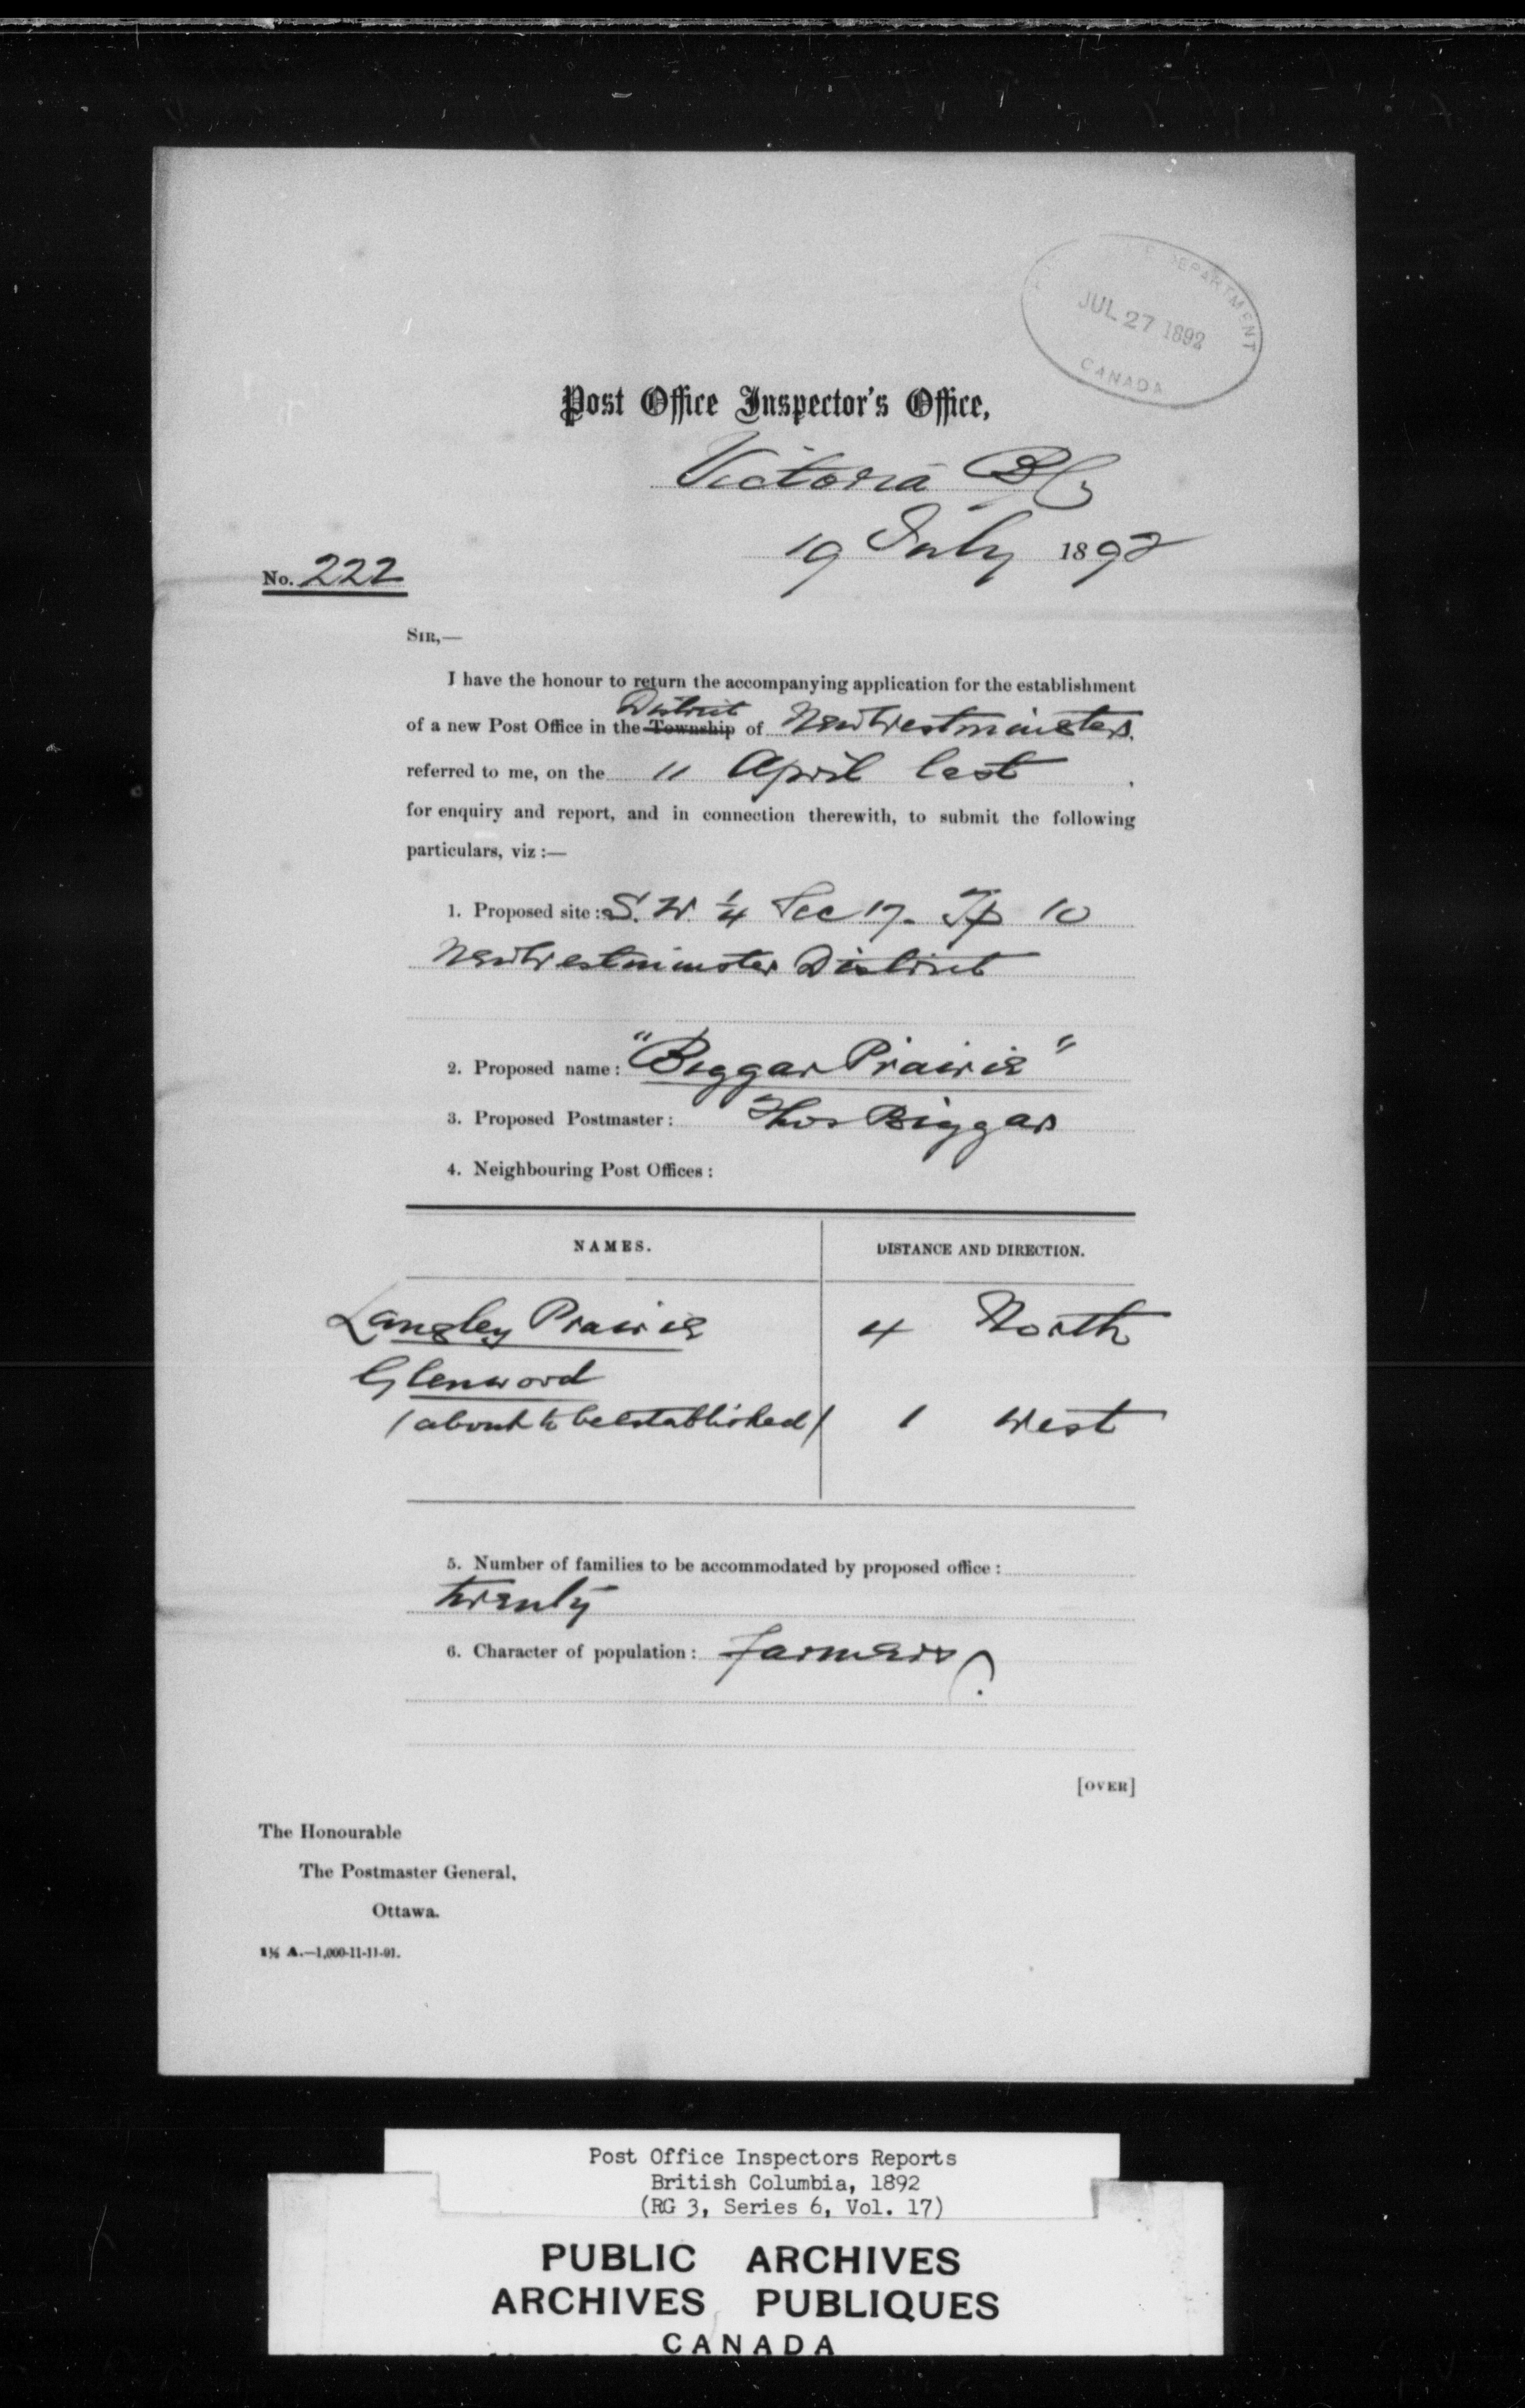 DEPARTMENT
JUL 27 1892
CANADA
Post Office Inspector's Office,
Victoria BC
19 July 1892
No. 222
SIR,—
I have the honour to return the accompanying application for the establishment
District
of a new Post Office in the Township of New Westminster
referred to me, on the 11 April last
for enquiry and report, and in connection therewith, to submit the following
particulars, viz :—
1. Proposed site: S. W. 1/4 Sec 17. Tp 10
New Westminster District
2. Proposed name: "Biggar Prairie"
3. Proposed Postmaster: Thos Biggar
4. Neighbouring Post Offices:
NAMES. DISTANCE AND DIRECTION.
Langley Prairie 4 North
Glenwood
(about to be established) 1 West
5. Number of families to be accommodated by proposed office:
twenty
6. Character of population: farmers
[OVER]
The Honourable
The Postmaster General,
Ottawa.
A.—1,000-11-11-91.
Post Office Inspectors Reports
British Columbia, 1892
(RG 3, Series 6, Vol. 17)
PUBLIC ARCHIVES
ARCHIVES PUBLIQUES
CANADA